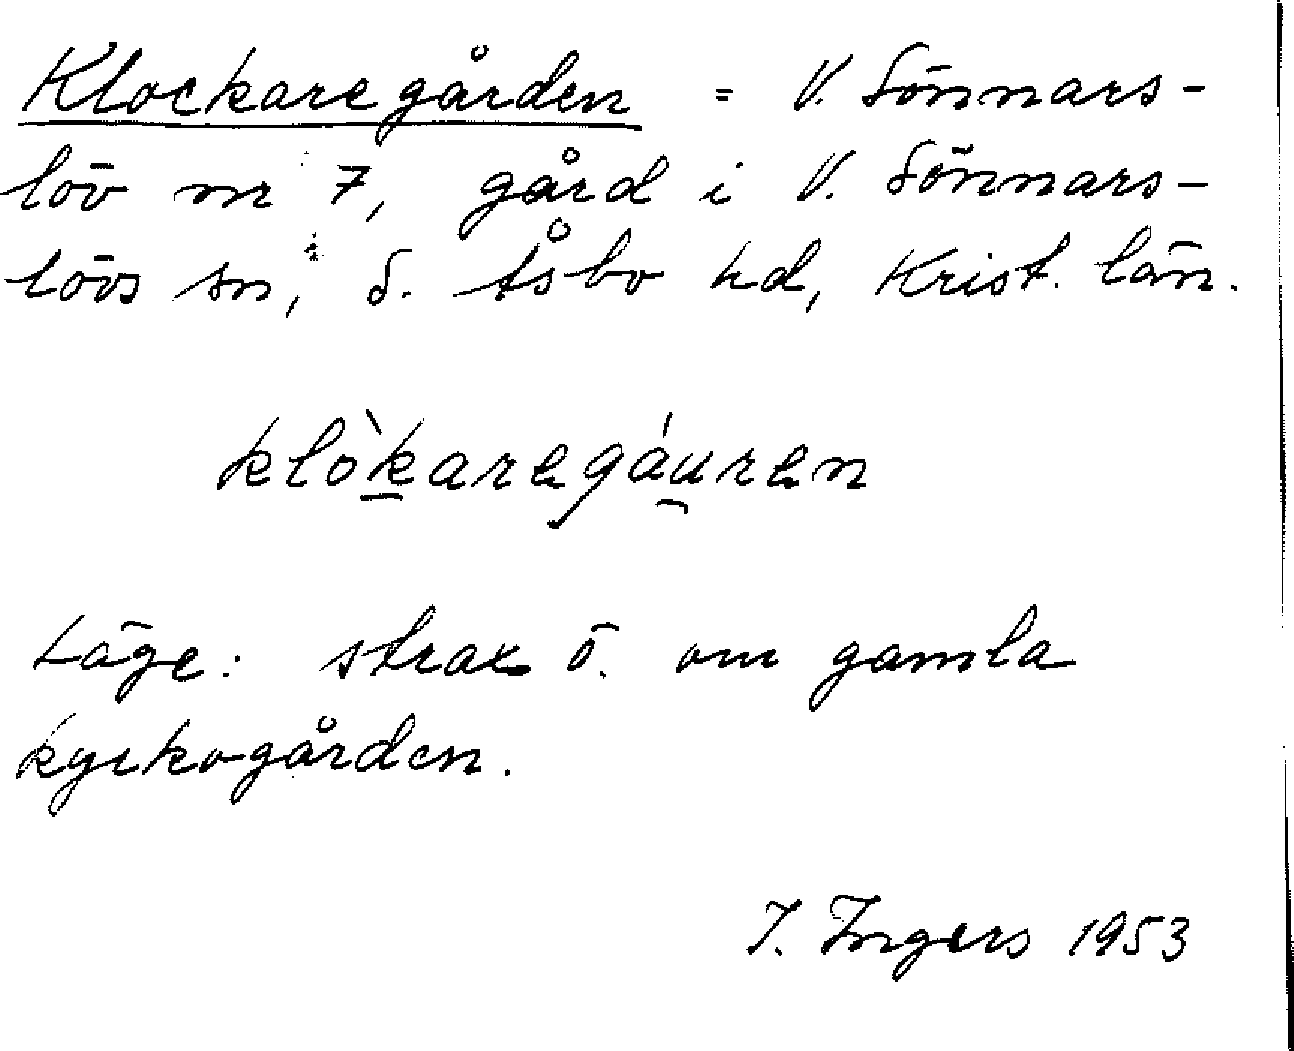 Klockaregården = V. Sönnars-
löv nr 7, gård i V. Sönnars-
lövs sn, S. Åsbo hd, Krist. län.
klòkaregáuren
Läge: strax ö. om gamla
kyrkogården.
I. Ingers 1953